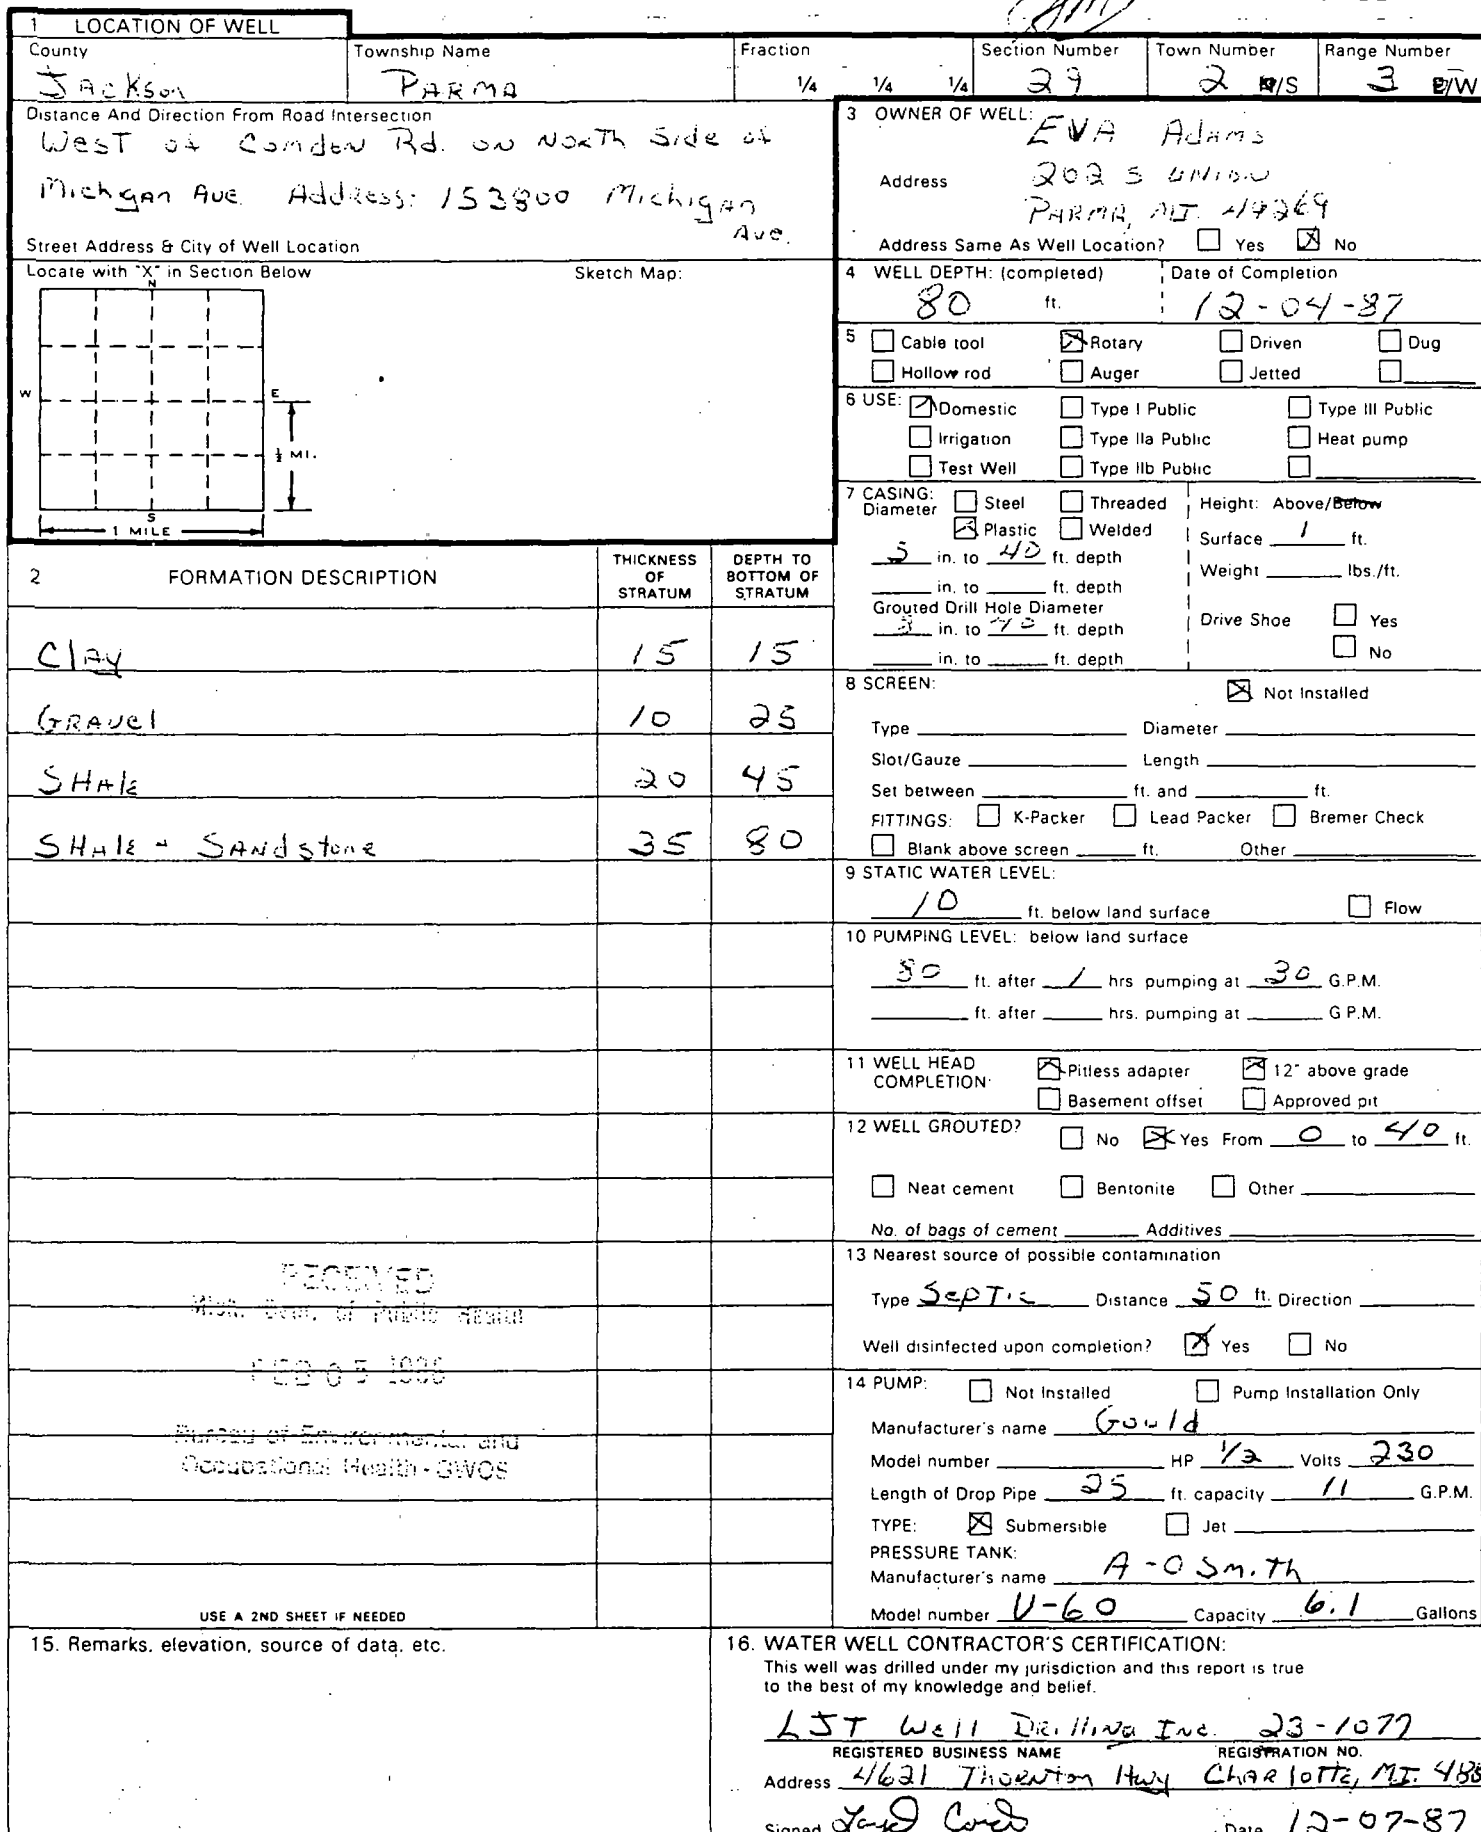 1 LOCATION OF WELL
County Township Name Fraction Section Number Town Number Range Number
Jackson PARMA 1/4 1/4 1/4 29 2 N/S 3 E/W
Distance And Direction From Road Intersection
West of Comdon Rd. on North Side of
Michgan Ave. Address: 153800 Michigan
Ave.
Street Address & City of Well Location
Locate with "X" in Section Below Sketch Map:
N
W E
½ MI.
S
1 MILE
3 OWNER OF WELL: EVA Adams
Address 202 S UNION
PARMA, MI. 49269
Address Same As Well Location? Yes No
4 WELL DEPTH: (completed) Date of Completion
80 ft. 12-04-87
5 Cable tool Rotary Driven Dug
Hollow rod Auger Jetted
6 USE: Domestic Type I Public Type III Public
Irrigation Type IIa Public Heat pump
Test Well Type IIb Public
7 CASING: Steel Threaded Height: Above/Below
Diameter Plastic Welded Surface 1 ft.
5 in. to 40 ft. depth
Weight lbs./ft.
in. to ft. depth
Grouted Drill Hole Diameter
in. to 40 ft. depth Drive Shoe Yes
in. to ft. depth No
2 FORMATION DESCRIPTION THICKNESS OF STRATUM DEPTH TO BOTTOM OF STRATUM
Clay 15 15
GRAVEl 10 25
SHAle 20 45
SHAle - SANdstone 35 80
8 SCREEN: Not Installed
Type Diameter
Slot/Gauze Length
Set between ft. and ft.
FITTINGS: K-Packer Lead Packer Bremer Check
Blank above screen ft. Other
9 STATIC WATER LEVEL:
10 ft. below land surface Flow
10 PUMPING LEVEL: below land surface
80 ft. after 1 hrs pumping at 30 G.P.M.
ft. after hrs. pumping at G P.M.
11 WELL HEAD COMPLETION: Pitless adapter 12" above grade
Basement offset Approved pit
12 WELL GROUTED? No Yes From 0 to 40 ft.
Neat cement Bentonite Other
No. of bags of cement Additives
13 Nearest source of possible contamination
Type SepTic Distance 50 ft. Direction
Well disinfected upon completion? Yes No
14 PUMP: Not Installed Pump Installation Only
Manufacturer's name Gould
Model number HP 1/2 Volts 230
Length of Drop Pipe 25 ft. capacity 11 G.P.M.
TYPE: Submersible Jet
PRESSURE TANK:
Manufacturer's name A-O Smith
Model number V-60 Capacity 6.1 Gallons
RECEIVED
Mich. Dept. of Public Health
FEB 05
Bureau of Environmental and
Occupational Health - GWQS
USE A 2ND SHEET IF NEEDED
15. Remarks, elevation, source of data, etc.
16. WATER WELL CONTRACTOR'S CERTIFICATION:
This well was drilled under my jurisdiction and this report is true
to the best of my knowledge and belief.
LJT Well Drilling Inc. 23-1077
REGISTERED BUSINESS NAME REGISTRATION NO.
Address 4621 Thornton Hwy Charlotte, MI. 488
Signed Date 12-07-87